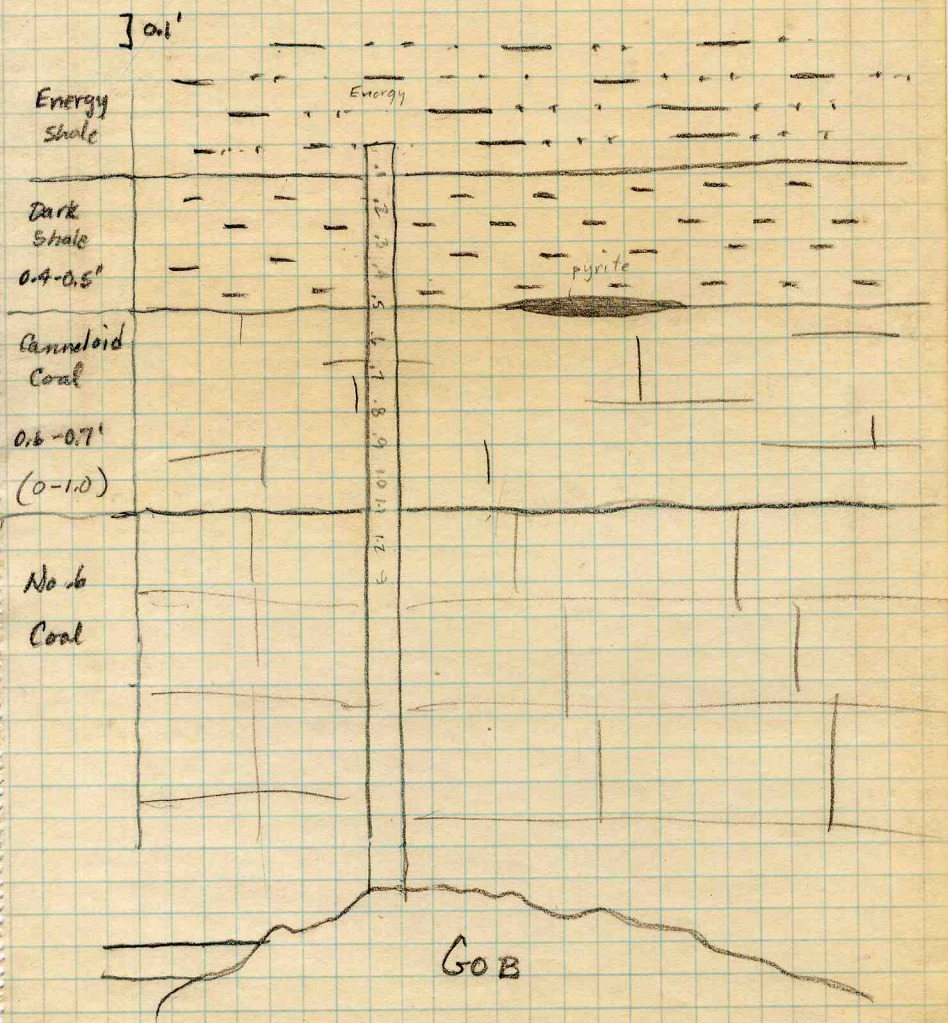 ] 0.1'
Energy
Shale
Energy
Dark
Shale
0.4-0.5'
pyrite
Canneloid
Coal
0.6-0.7'
(0-1.0)
No. 6
Coal
.1
.2
.3
.4
.5
.6
.7
.8
.9
1.0
1.1
1.2
GOB